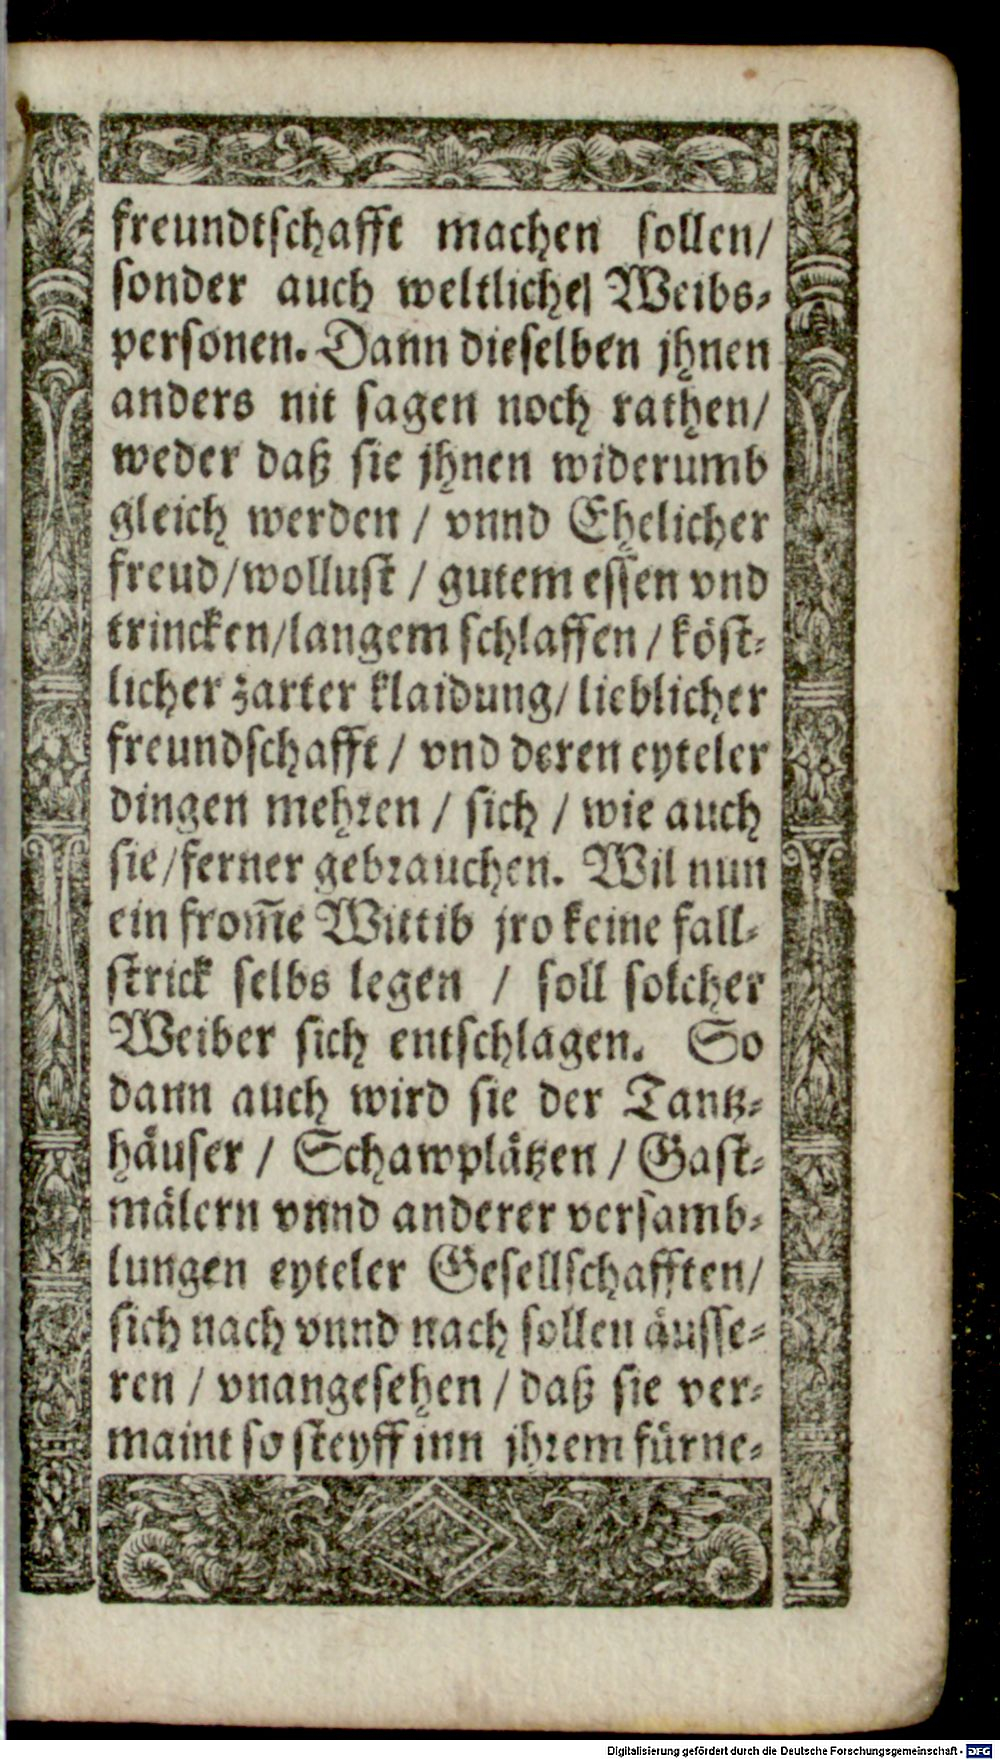 freundtschafft machen sollen/
sonder auch weltliche Weibs-
personen. Dann dieselben jhnen
anders nit sagen noch rathen/
weder daß sie jhnen widerumb
gleich werden / vnnd Ehelicher
freud/wollust / gutem essen vnd
trincken/langem schlaffen / köst-
licher zarter klaidung/ lieblicher
freundschafft / vnd deren eyteler
dingen mehren / sich / wie auch
sie/ferner gebrauchen. Wil nun
ein from̃e Wittib jro keine fall-
strick selbs legen / soll solcher
Weiber sich entschlagen. So
dann auch wird sie der Tantz-
häuser / Schawplätzen / Gast-
mälern vnnd anderer versamb-
lungen eyteler Gesellschafften/
sich nach vnnd nach sollen äusse-
ren / vnangesehen / daß sie ver-
maint so steyff inn jhrem fürne-
Digitalisierung gefördert durch die Deutsche Forschungsgemeinschaft - DFG